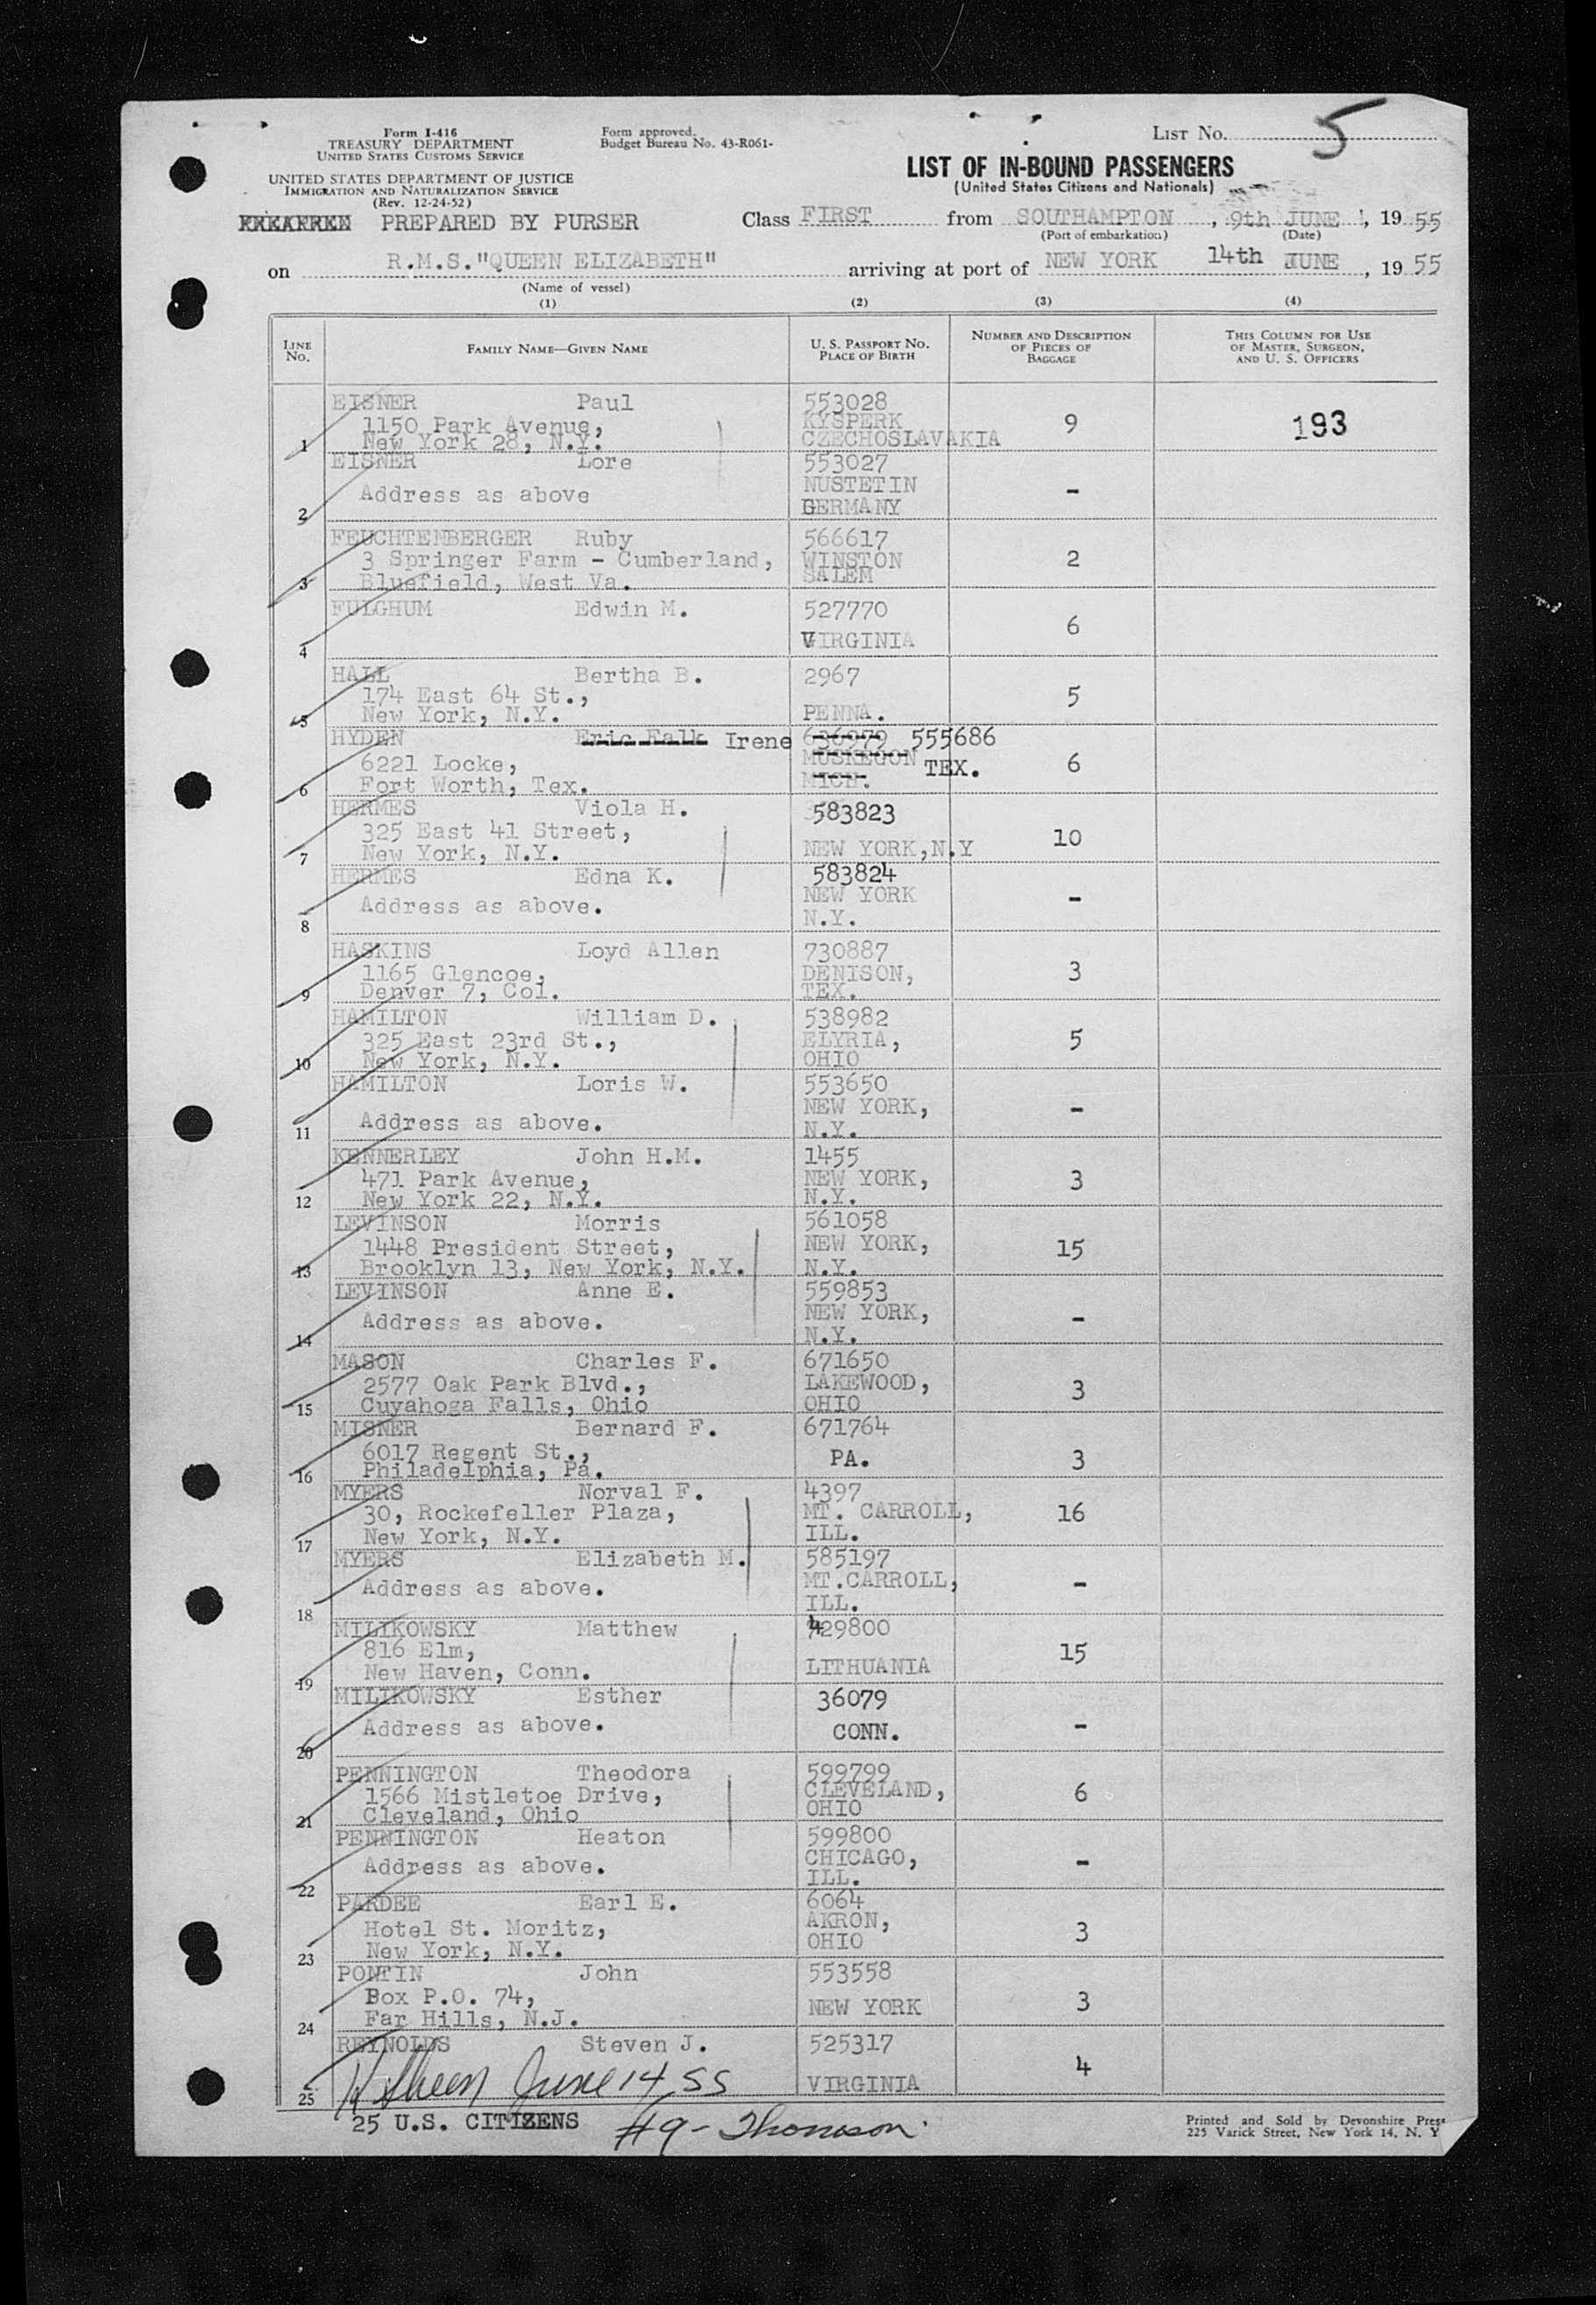 Form I-416
TREASURY DEPARTMENT
UNITED STATES CUSTOMS SERVICE
UNITED STATES DEPARTMENT OF JUSTICE
IMMIGRATION AND NATURALIZATION SERVICE
(Rev. 12-24-52)
Form approved.
Budget Bureau No. 43-R061-
LIST NO. 5
LIST OF IN-BOUND PASSENGERS
(United States Citizens and Nationals)
PREPARED BY PURSER Class FIRST from SOUTHAMPTON, 9th JUNE, 1955
(Port of embarkation) (Date)
on R.M.S."QUEEN ELIZABETH" arriving at port of NEW YORK 14th JUNE, 1955
(Name of vessel)
(1) (2) (3) (4)
LINE NO. FAMILY NAME—GIVEN NAME U. S. PASSPORT NO. PLACE OF BIRTH NUMBER AND DESCRIPTION OF PIECES OF BAGGAGE THIS COLUMN FOR USE OF MASTER, SURGEON, AND U. S. OFFICERS
EISNER Paul 553028
1150 Park Avenue, KYSPERK 9 193
1 New York 28, N.Y. CZECHOSLAVAKIA
EISNER Lore 553027
Address as above NUSTETIN -
2 GERMANY
FEUCHTENBERGER Ruby 566617
3 Springer Farm - Cumberland, WINSTON 2
3 Bluefield, West Va. SALEM
FULGHUM Edwin M. 527770
6
4 VIRGINIA
HALL Bertha B. 2967
174 East 64 St., 5
5 New York, N.Y. PENNA.
HYDEN Eric Falk Irene 636979 555686
6221 Locke, MUSKEGON TEX. 6
6 Fort Worth, Tex. MICH.
HERMES Viola H. 583823
325 East 41 Street, 10
7 New York, N.Y. NEW YORK,N.Y
HERMES Edna K. 583824
Address as above. NEW YORK -
8 N.Y.
HASKINS Loyd Allen 730887
1165 Glencoe, DENISON, 3
9 Denver 7, Col. TEX.
HAMILTON William D. 538982
325 East 23rd St., ELYRIA, 5
10 New York, N.Y. OHIO
HAMILTON Loris W. 553650
Address as above. NEW YORK, -
11 N.Y.
KENNERLEY John H.M. 1455
471 Park Avenue, NEW YORK, 3
12 New York 22, N.Y. N.Y.
LEVINSON Morris 561058
1448 President Street, NEW YORK, 15
13 Brooklyn 13, New York, N.Y. N.Y.
LEVINSON Anne E. 559853
Address as above. NEW YORK, -
14 N.Y.
MASON Charles F. 671650
2577 Oak Park Blvd., LAKEWOOD, 3
15 Cuyahoga Falls, Ohio OHIO
MISNER Bernard F. 671764
6017 Regent St., PA. 3
16 Philadelphia, Pa.
MYERS Norval F. 4397
30, Rockefeller Plaza, MT. CARROLL, 16
17 New York, N.Y. ILL.
MYERS Elizabeth M. 585197
Address as above. MT.CARROLL, -
18 ILL.
MILIKOWSKY Matthew 429800
816 Elm, 15
19 New Haven, Conn. LITHUANIA
MILIKOWSKY Esther 36079
Address as above. CONN. -
20
PENNINGTON Theodora 599799
1566 Mistletoe Drive, CLEVELAND, 6
21 Cleveland, Ohio OHIO
PENNINGTON Heaton 599800
Address as above. CHICAGO, -
22 ILL.
PARDEE Earl E. 6064
Hotel St. Moritz, AKRON, 3
23 New York, N.Y. OHIO
PONTIN John 553558
Box P.O. 74, NEW YORK 3
24 Far Hills, N.J.
REYNOLDS Steven J. 525317
June 14 55 4
25 VIRGINIA
25 U.S. CITIZENS #9- Thomson
Printed and Sold by Devonshire Press
225 Varick Street, New York 14, N. Y